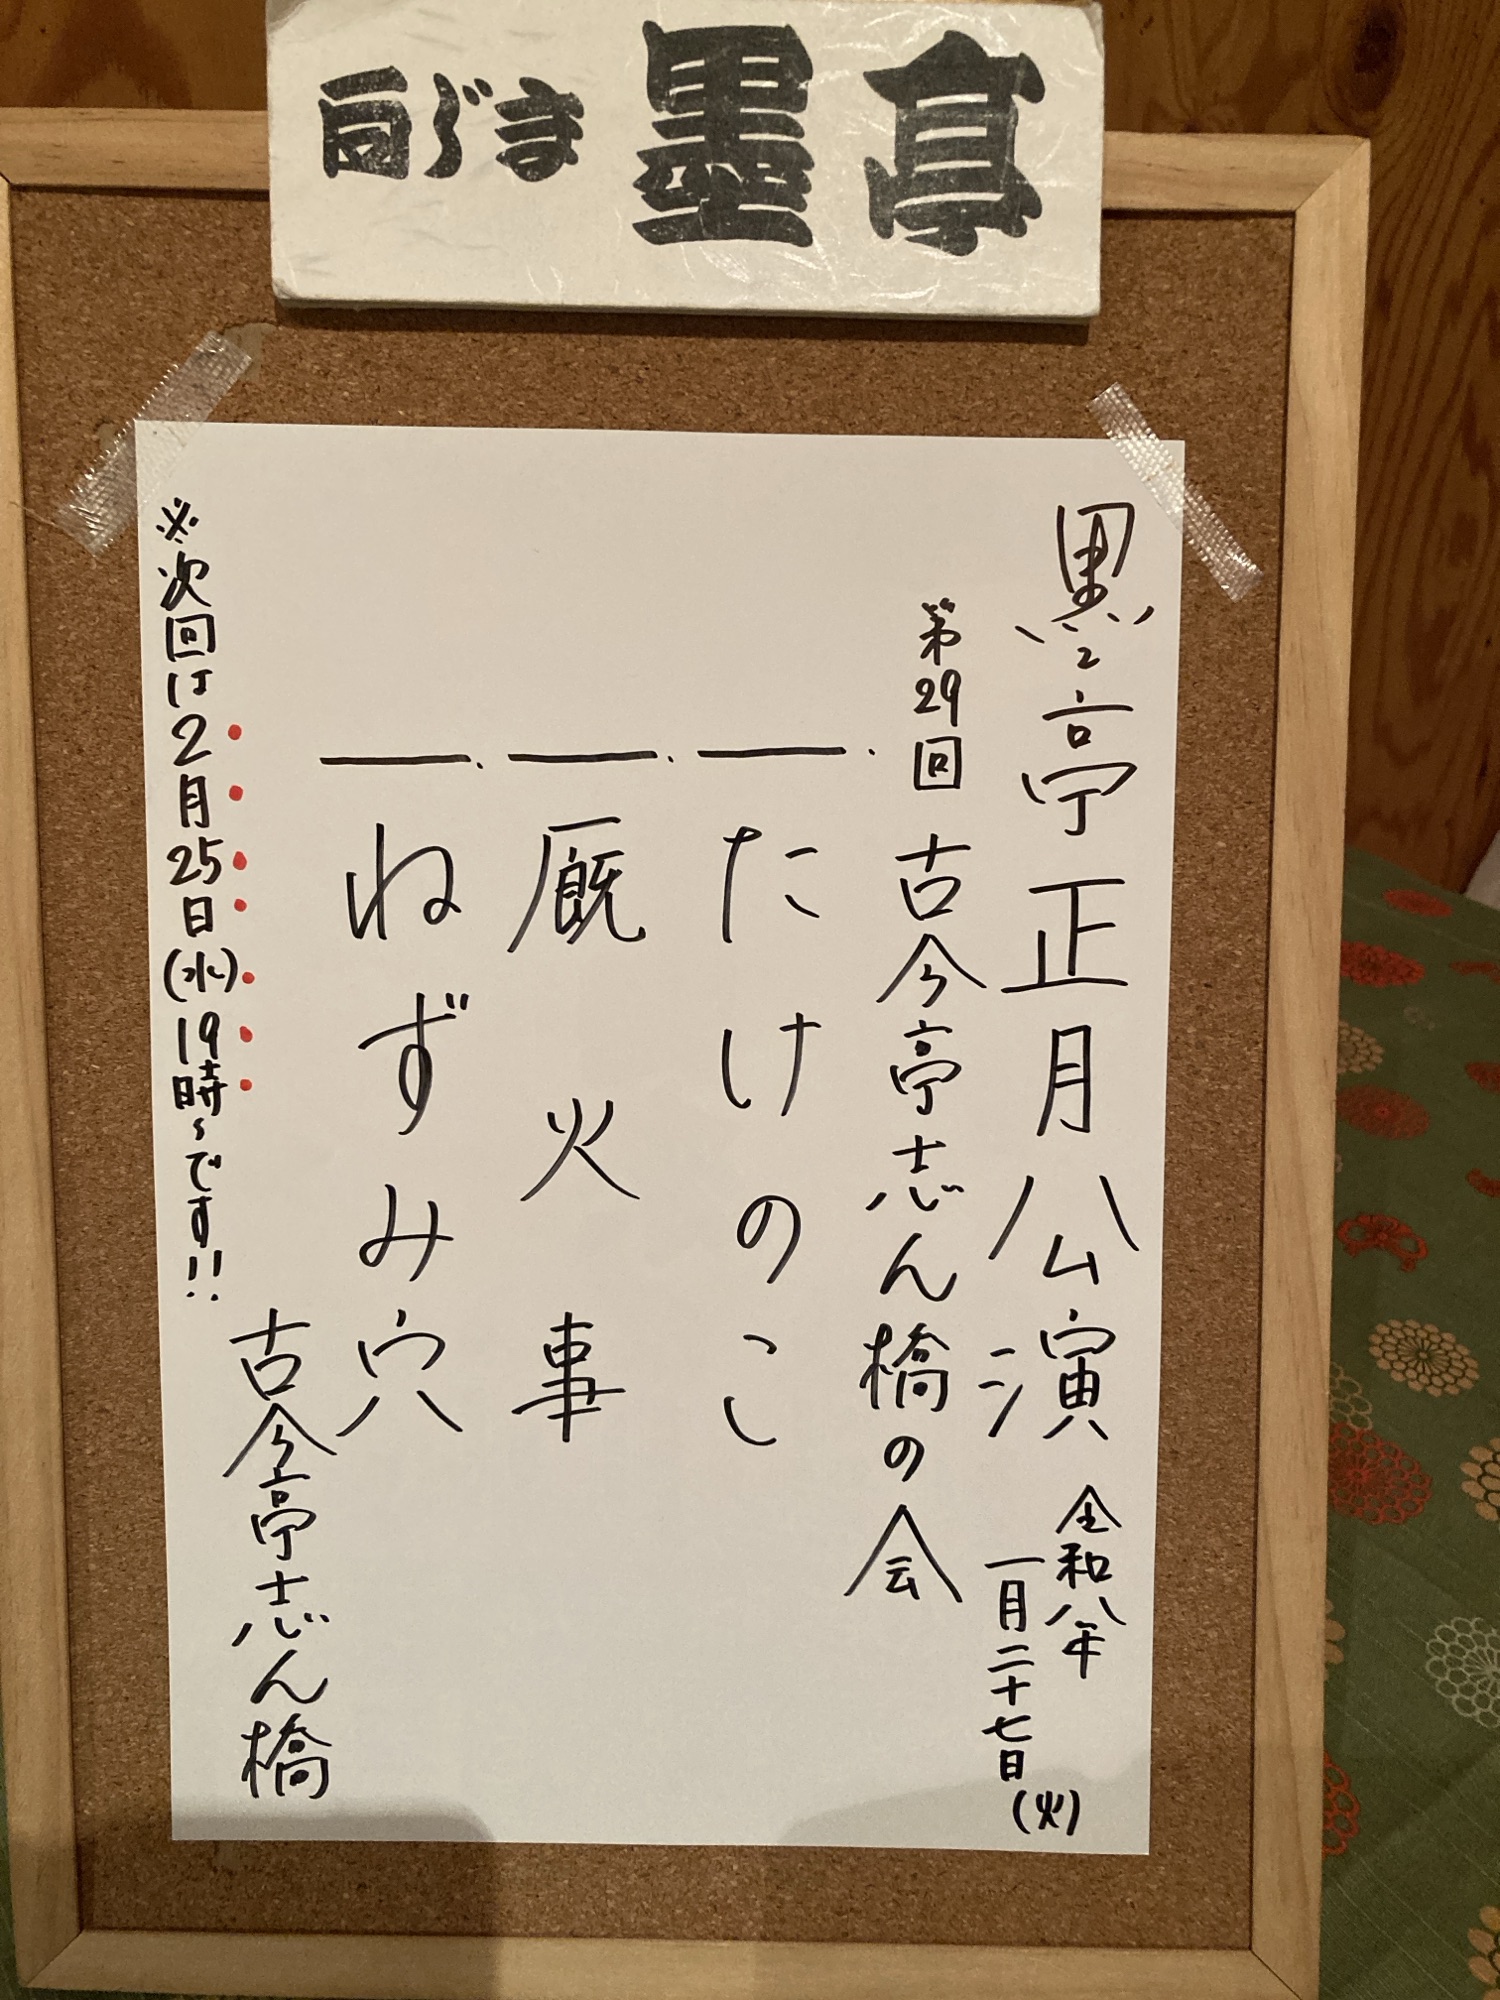 向じま 墨亭
墨亭正月公演 令和八年
一月二十七日(火)
第29回 古今亭志ん橋の会
一、たけのこ
一、厩火事
一、ねずみ穴
古今亭志ん橋
※次回は2月25日(水)19時~です!!